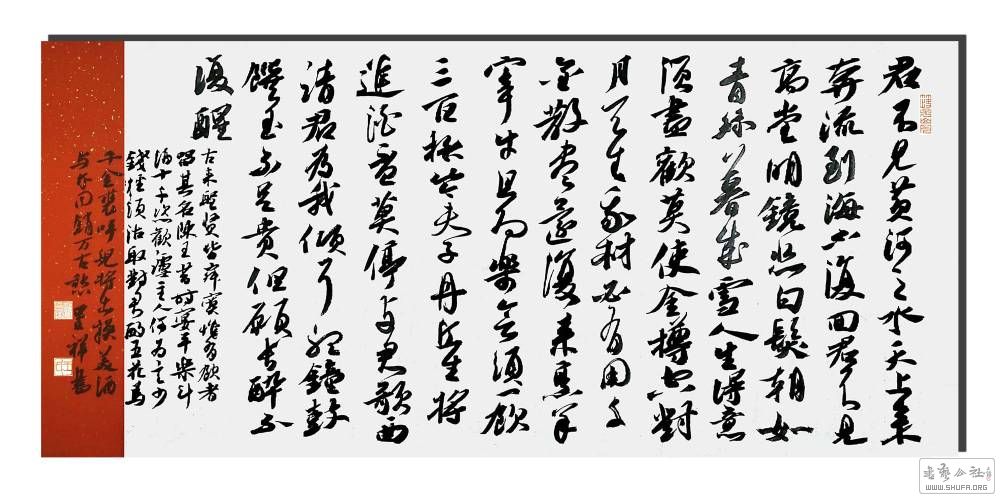 君不見黄河之水天上来
奔流到海不復回君不見
高堂明鏡悲白髮朝如
青絲暮成雪人生得意
須盡歡莫使金樽空對
月天生我材必有用千
金散盡還復来烹羊
宰牛且為樂會須一飲
三百杯岑夫子丹丘生將
進酒盃莫停与君歌一曲
請君為我傾耳聽鐘鼓
饌玉不足貴但願長醉不
復醒
古来聖賢皆寂寞惟有飲者
留其名陳王昔時宴平樂斗
酒十千恣歡謔主人何為言少
錢徑須沽取對君酌五花馬
千金裘呼兒將出換美酒
与尔同銷万古愁
WWW.SHUFA.ORG